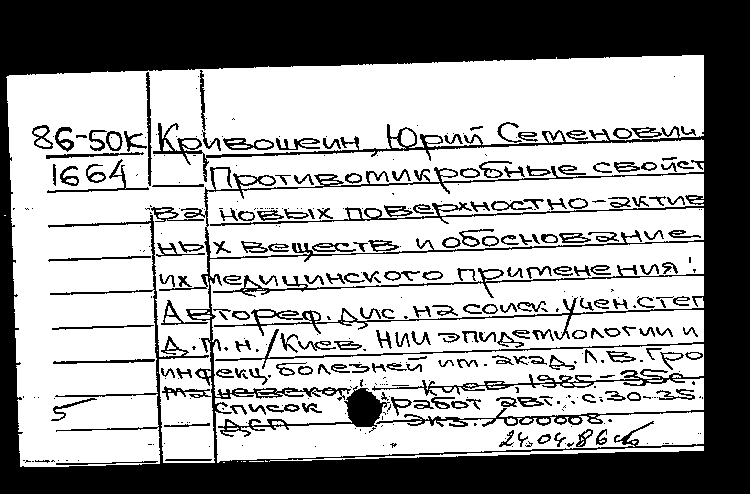 86-50К Кривошеин, Юрий Семенович.
1664 Противомикробные свойст
ва новых поверхностно-актив
ных веществ и обоснование
их медицинского применения:
Автореф. дис. на соиск. учен. степ
д.м.н. / Киев. НИИ эпидемиологии и
инфекц. болезней им. акад. Л.В. Гро
машевского. — Киев, 1985. - 35с.
5 список работ авт.: с.30-35.
ДСП экз. 000008.
24.04.86